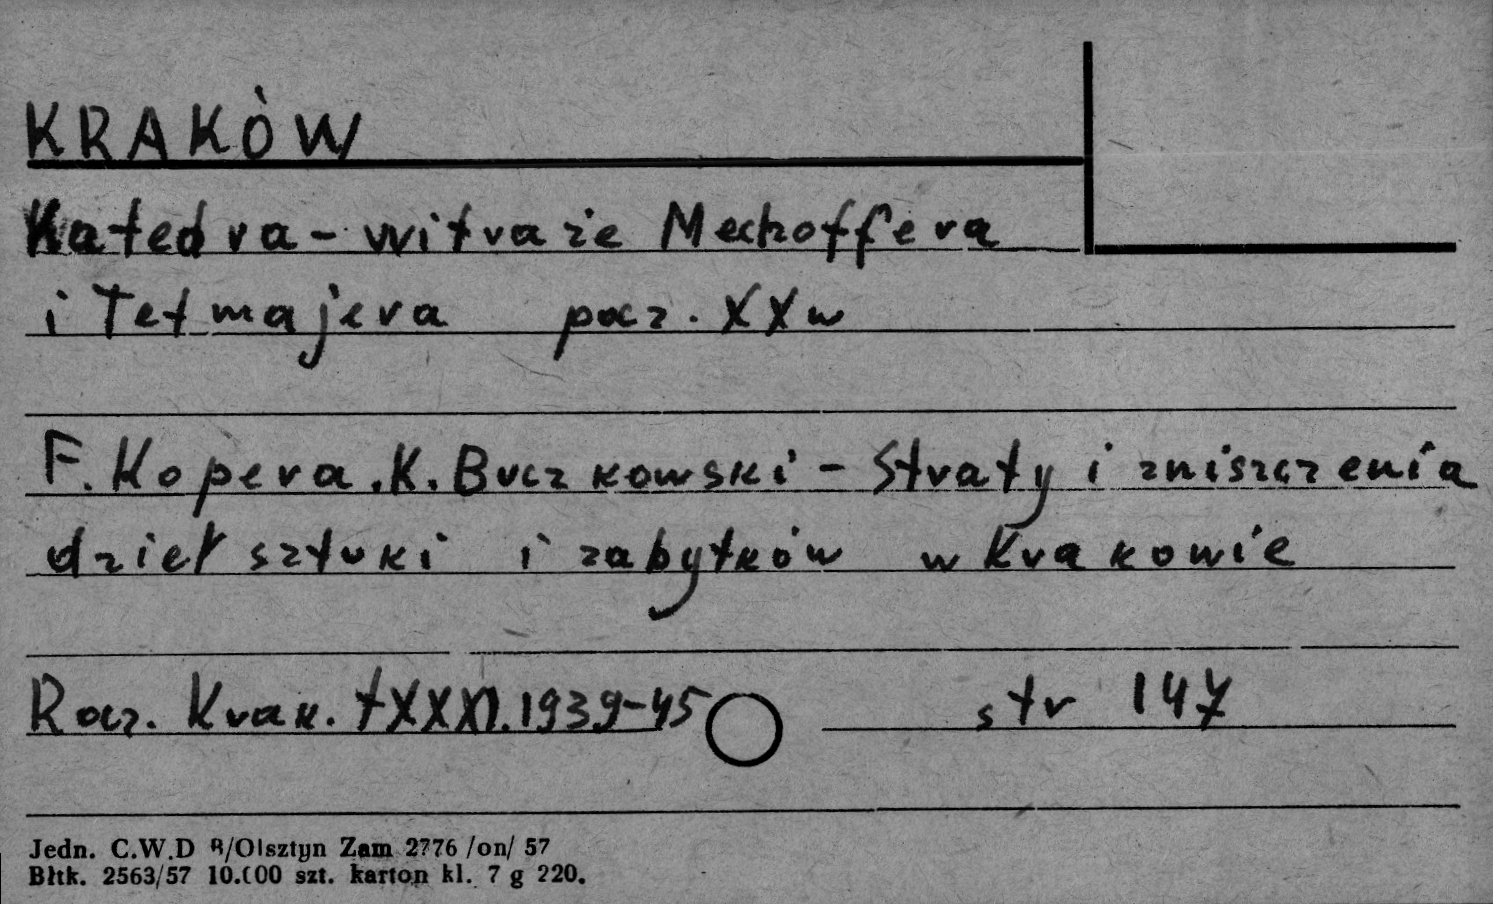 KRAKÓW
Katedra - witraże Mechoffera
i Tetmajera pocz. XX w
F. Kopera. K. Buczkowski - Straty i zniszczenia
dzieł sztuki i zabytków w Krakowie
Rocz. Krak. t XXXI. 1939-45 str 147
Jedn. C.W.D B/Olsztyn Zam 2776 /on/ 57
Błtk. 2563/57 10.000 szt. karton kl. 7 g 220.